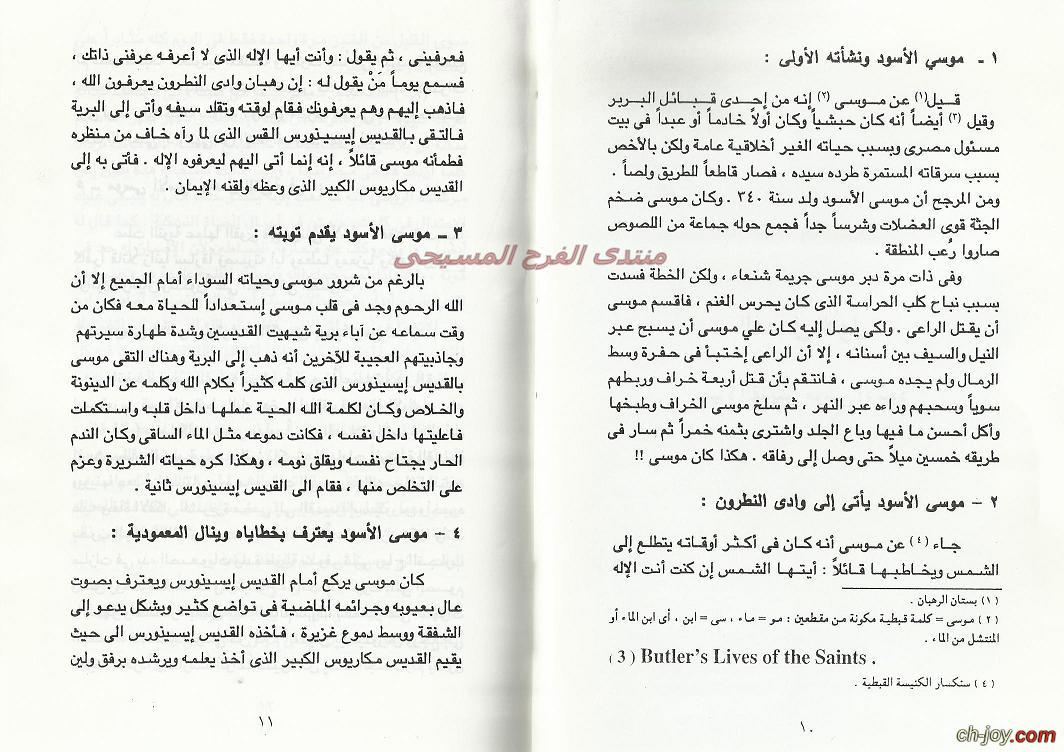 ١ ـ موسي الأسود ونشأته الأولى :
قـيـل(١) عن مـوسـى (٢) إنه من إحـدى قـبـائل الـبـربـر
وقيل (٣) أيضـاً أنه كان حبشيـاً وكان أولاً خادمـاً أو عبداً فى بيت
مسئول مصرى وبسبب حياته الغير أخلاقية عامة ولكن بالأخص
بسبب سرقاته المستمرة طرده سيده ، فصار قاطعاً للطريق ولصاً .
ومن المرجح أن موسى الأسود ولد سنة ٣٤٠ . وكان موسى ضخم
الجثة قوى العضلات وشرساً جداً فجمع حوله جماعة من اللصوص
صاروا رُعب المنطقة .
وفى ذات مرة دبر موسى جريمة شنعاء ، ولكن الخطة فسدت
بسبب نباح كلب الحراسة الذى كان يحرس الغنم ، فاقسم موسى
أن يقتل الراعى . ولكى يصل إليه كان علي موسى أن يسبح عبر
النيل والسيف بين أسنانه ، إلا أن الراعى إختبـأ فى حفرة وسط
الرمال ولم يجده موسـى ، فانتقم بأن قتل أربعة خراف وربطهم
سوياً وسحبهم وراءه عبر النهر ، ثم سلخ موسى الخراف وطبخها
وأكل أحسن ما فيها وباع الجلد واشترى بثمنه خمراً ثم سار فى
طريقه خمسين ميلاً حتى وصل إلى رفاقه . هكذا كان موسى !!
٢ - موسى الأسود يأتى إلى وادى النطرون :
جاء (٤) عن موسـى أنه كان فى أكثر أوقاته يتطلع إلى
الشمس ويخاطبـها قائلاً : أيتـها الشمس إن كنت أنت الإله
(١) بستان الرهبان .
(٢) موسى = كلمة قبطية مكونة من مقطعين : مو = ماء ، سى = ابن ، أى ابن الماء أو
المنتشل من الماء .
(3) Butler's Lives of the Saints .
(٤) سنكسار الكنيسة القبطية .
١٠
فـعـرفيـنـى ، ثم يقول : وأنت أيها الإله الذى لا أعرفه عرفنى ذاتك ،
فسـمع يومـاً مَنْ يقول لـه : إن رهبان وادى النطرون يعرفون الله ،
فـاذهب إليهم وهم يعرفونك فقام لوقته وتقلد سيفه وأتى إلى البرية
فـالتقى بالقديس إيسيـذورس القس الذى لما رآه خاف من منظره
فطمأنه موسى قائلاً ، إنه إنما أتى اليهم ليعرفوه الإله . فأتى به إلى
القديس مكاريوس الكبير الذى وعظه ولقنه الإيمان .
٣ ـ موسى الأسود يقدم توبته :
بالرغم من شرور موسى وحياته السوداء أمام الجميع إلا أن
الله الرحـوم وجد فى قلب موسى إستعداداً للحياة معه فكان من
وقت سماعه عن آباء برية شيهيت القديسين وشدة طهارة سيرتهم
وجاذبيتهم العجيبة للآخرين أنه ذهب إلى البرية وهناك التقى موسى
بالقديس إيسيذورس الذى كلمه كثيراً بكلام الله وكلمه عن الدينونة
والخلاص وكان لكلمة الله الحية عملها داخل قلبه واستكملت
فـاعليتها داخل نفسه ، فكانت دموعه مثل الماء الساقى وكان الندم
الحار يجتاح نفسه ويقلق نومه ، وهكذا كره حياته الشريرة وعزم
على التخلص منها ، فقام الى القديس إيسينورس ثانية .
٤ - موسى الأسود يعترف بخطاياه وينال المعمودية :
كان موسى يركع أمام القديس إيسيذورس ويعترف بصوت
عال بعيوبه وجرائمه الماضية فى تواضع كثير وبشكل يدعو إلى
الشفقة ووسط دموع غزيرة ، فـأخذه القديس إيسيذورس الى حيث
يقيم القديس مكاريوس الكبير الذى أخذ يعلمه ويرشده برفق ولين
١١
منتدى الفرح المسيحى
ch-joy.com